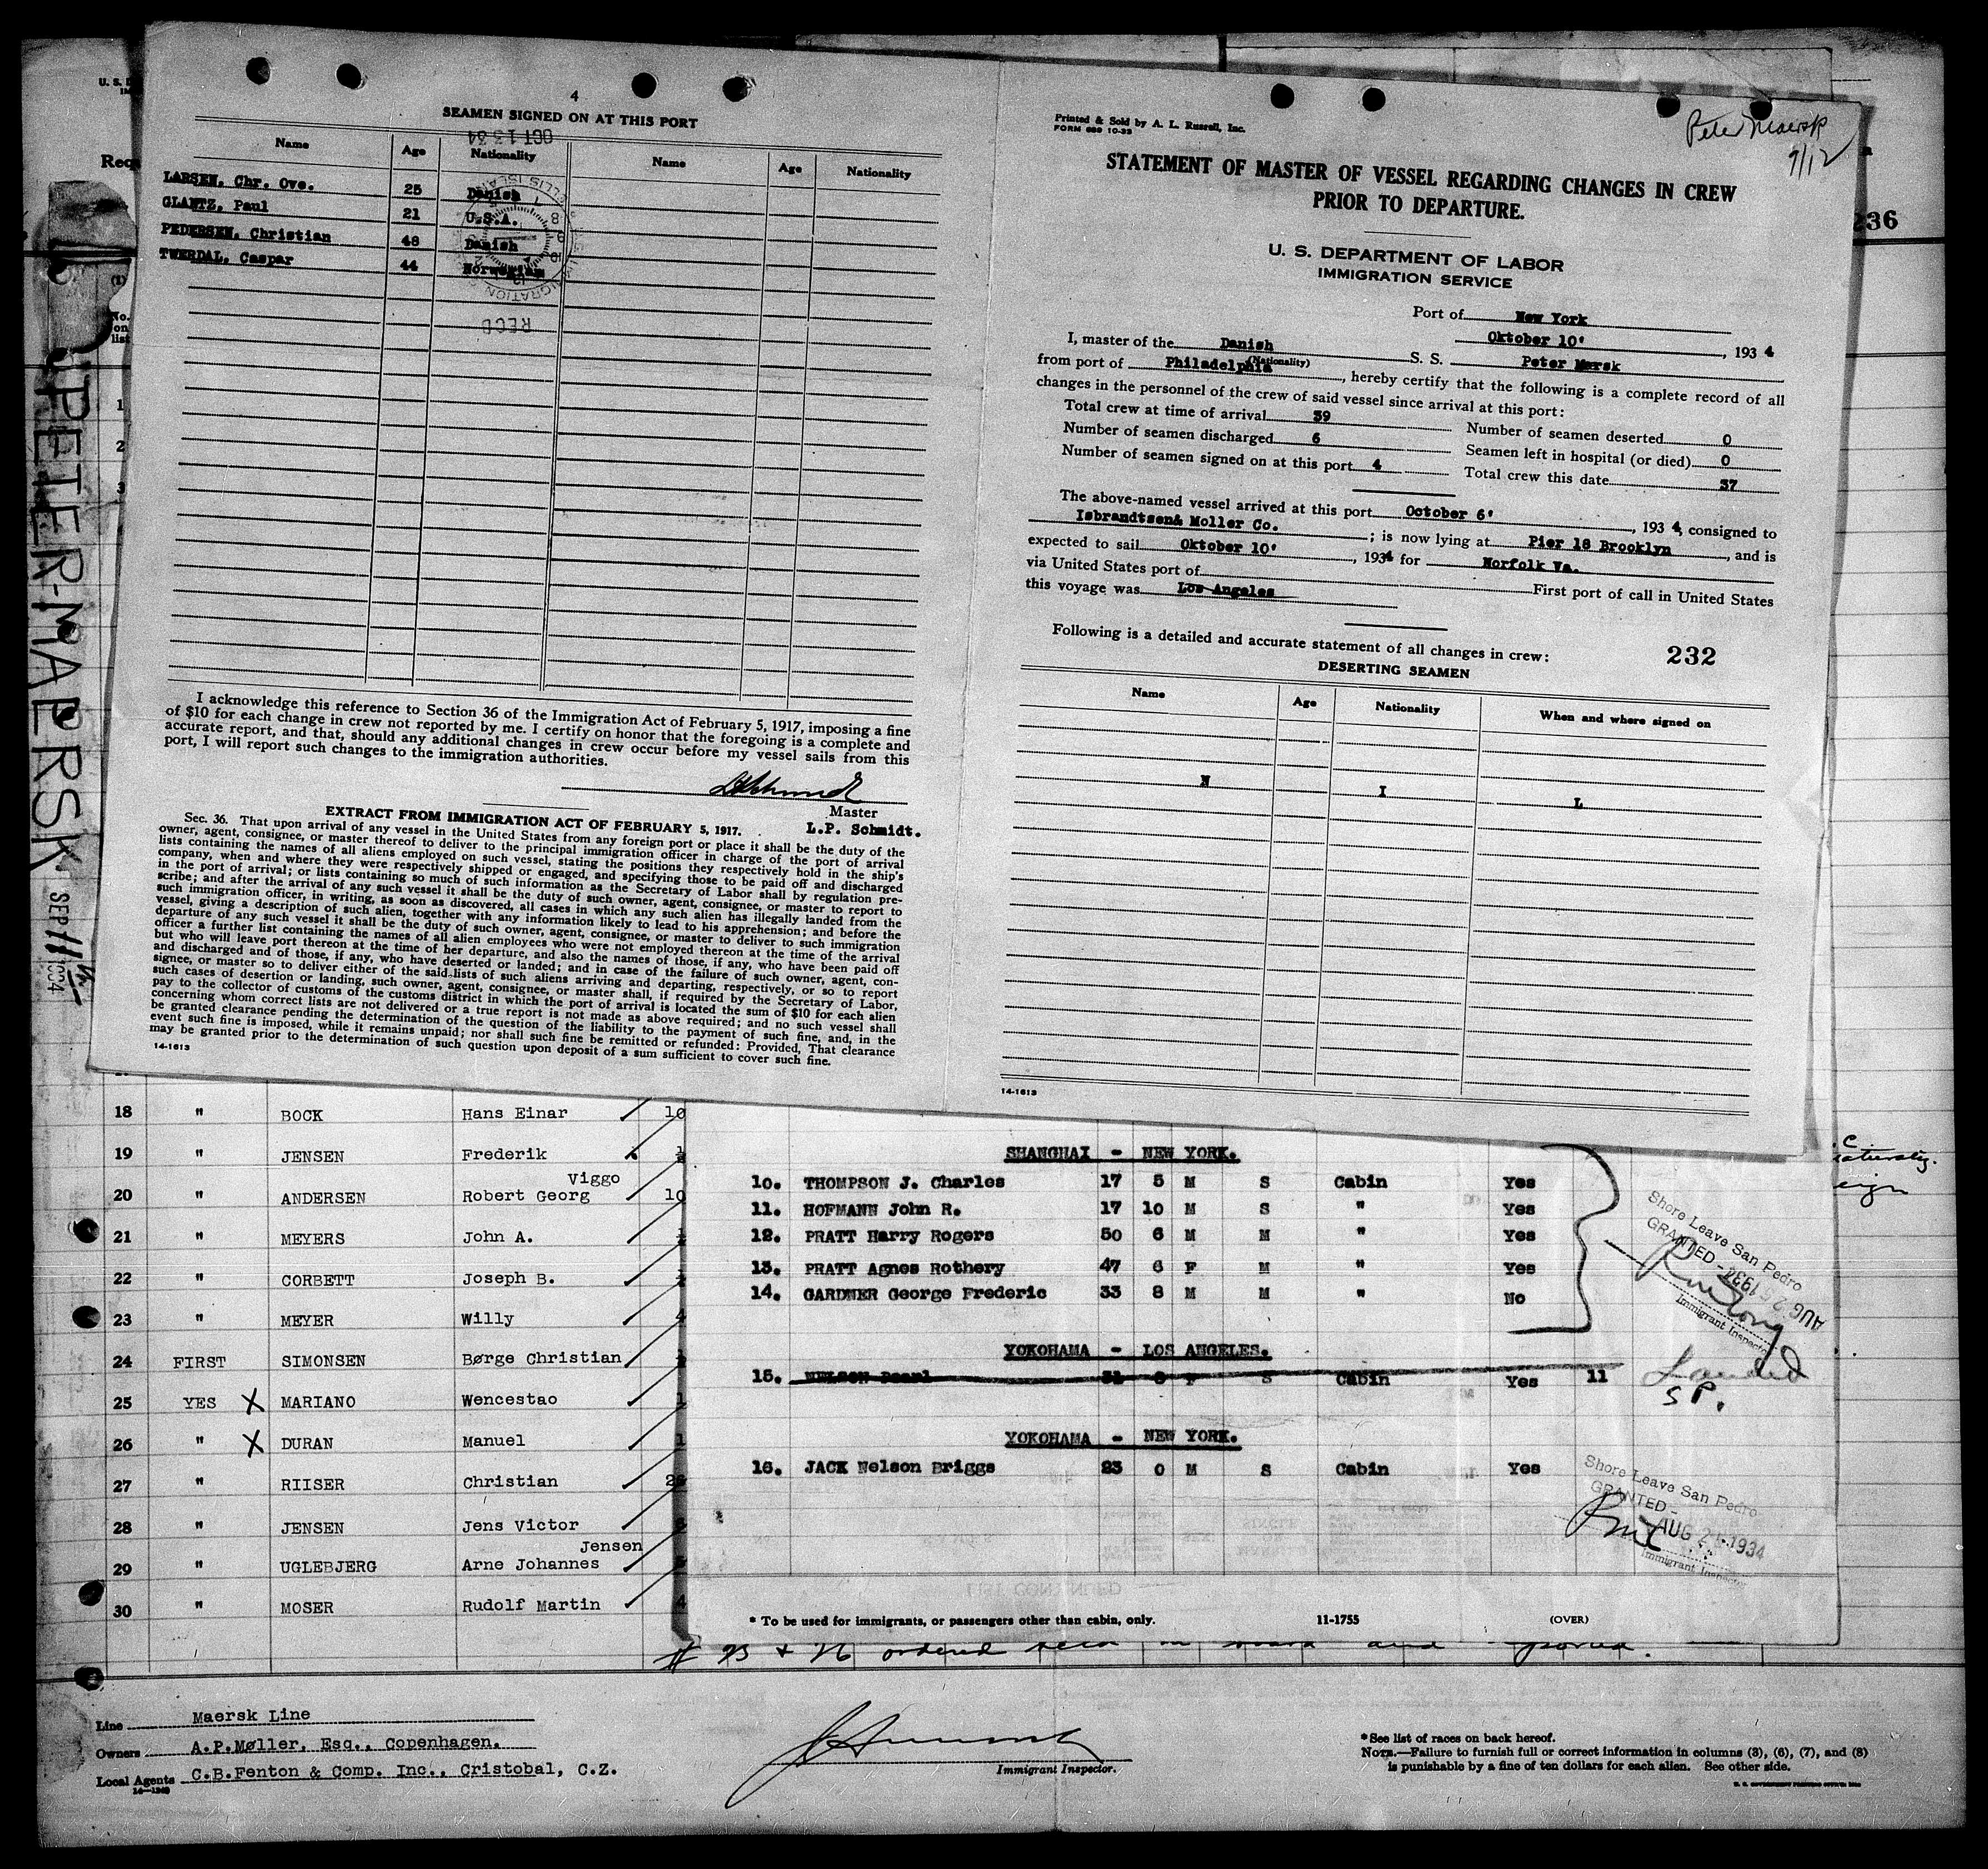 4
SEAMEN SIGNED ON AT THIS PORT
OCT 13 34
Name Age Nationality Name Age Nationality
LARSEN, Chr. Ove. 25 Danish
GLANTZ, Paul 21 U.S.A.
PEDERSEN, Christian 48 Danish
TWERDAL, Caspar 44 Norwegian
RECD
I acknowledge this reference to Section 36 of the Immigration Act of February 5, 1917, imposing a fine
of $10 for each change in crew not reported by me. I certify on honor that the foregoing is a complete and
accurate report, and that, should any additional changes in crew occur before my vessel sails from this
port, I will report such changes to the immigration authorities.
Master
L.P. Schmidt.
EXTRACT FROM IMMIGRATION ACT OF FEBRUARY 5, 1917.
Sec. 36. That upon arrival of any vessel in the United States from any foreign port or place it shall be the duty of the
owner, agent, consignee, or master thereof to deliver to the principal immigration officer in charge of the port of arrival
lists containing the names of all aliens employed on such vessel, stating the positions they respectively hold in the ship's
company, when and where they were respectively shipped or engaged, and specifying those to be paid off and discharged
in the port of arrival; or lists containing so much of such information as the Secretary of Labor shall by regulation pre-
scribe; and after the arrival of any such vessel it shall be the duty of such owner, agent, consignee, or master to report to
such immigration officer, in writing, as soon as discovered, all cases in which any such alien has illegally landed from the
vessel, giving a description of such alien, together with any information likely to lead to his apprehension; and before the
departure of any such vessel it shall be the duty of such owner, agent, consignee, or master to deliver to such immigration
officer a further list containing the names of all alien employees who were not employed thereon at the time of the arrival
but who will leave port thereon at the time of her departure, and also the names of those, if any, who have been paid off
and discharged and of those, if any, who have deserted or landed; and in case of the failure of such owner, agent, con-
signee, or master so to deliver either of the said lists of such aliens arriving and departing, respectively, or so to report
such cases of desertion or landing, such owner, agent, consignee, or master shall, if required by the Secretary of Labor,
pay to the collector of customs of the customs district in which the port of arrival is located the sum of $10 for each alien
concerning whom correct lists are not delivered or a true report is not made as above required; and no such vessel shall
be granted clearance pending the determination of the question of the liability to the payment of such fine, and, in the
event such fine is imposed, while it remains unpaid; nor shall such fine be remitted or refunded: Provided, That clearance
may be granted prior to the determination of such question upon deposit of a sum sufficient to cover such fine.
14-1613
Printed & Sold by A. L. Russell, Inc.
FORM 689 10-33
Peter Maersk
9/12
STATEMENT OF MASTER OF VESSEL REGARDING CHANGES IN CREW
PRIOR TO DEPARTURE.
U. S. DEPARTMENT OF LABOR
IMMIGRATION SERVICE
Port of New York
Oktober 10' , 193 4
I, master of the Danish S. S. Peter Mærsk
(Nationality)
from port of Philadelphia , hereby certify that the following is a complete record of all
changes in the personnel of the crew of said vessel since arrival at this port:
Total crew at time of arrival 39 Number of seamen deserted 0
Number of seamen discharged 6 Seamen left in hospital (or died) 0
Number of seamen signed on at this port 4 Total crew this date 37
The above-named vessel arrived at this port October 6' , 193 4, consigned to
Isbrandtsen& Moller Co. ; is now lying at Pier 18 Brooklyn , and is
expected to sail Oktober 10' , 1934 for Norfolk Va.
via United States port of First port of call in United States
this voyage was Los Angeles
Following is a detailed and accurate statement of all changes in crew:
232
DESERTING SEAMEN
Name Age Nationality When and where signed on
N I L
14-1613
236
PETER-MAERSK
SEP 11 1934
18 " BOCK Hans Einar 10
19 " JENSEN Frederik
Viggo
20 " ANDERSEN Robert Georg 10
21 " MEYERS John A.
22 " CORBETT Joseph B.
23 " MEYER Willy 4
24 FIRST SIMONSEN Børge Christian
25 YES X MARIANO Wencestao 1
26 " X DURAN Manuel 1
27 " RIISER Christian
28 " JENSEN Jens Victor
Jensen
29 " UGLEBJERG Arne Johannes
30 " MOSER Rudolf Martin 4
SHANGHAI - NEW YORK.
10. THOMPSON J. Charles 17 5 M S Cabin Yes
11. HOFMANN John R. 17 10 M S " Yes
12. PRATT Harry Rogers 50 6 M M " Yes
13. PRATT Agnes Rothery 47 6 F M " Yes
14. GARDNER George Frederic 33 8 M M " No
Shore Leave San Pedro
GRANTED -
AUG 25 1934
Immigrant Inspector
YOKOHAMA - LOS ANGELES.
15. NELSON Pearl 31 0 F S Cabin Yes 11
Landed
S P.
YOKOHAMA - NEW YORK.
16. JACK Nelson Briggs 23 0 M S Cabin Yes
Shore Leave San Pedro
GRANTED -
AUG 25 1934
Immigrant Inspector
* To be used for immigrants, or passengers other than cabin, only. 11-1755 (OVER)
Line Maersk Line
Owners A.P.Møller, Esq., Copenhagen.
Local Agents C.B.Fenton & Comp. Inc., Cristobal, C.Z.
Immigrant Inspector.
*See list of races on back hereof.
NOTE.—Failure to furnish full or correct information in columns (3), (6), (7), and (8)
is punishable by a fine of ten dollars for each alien. See other side.